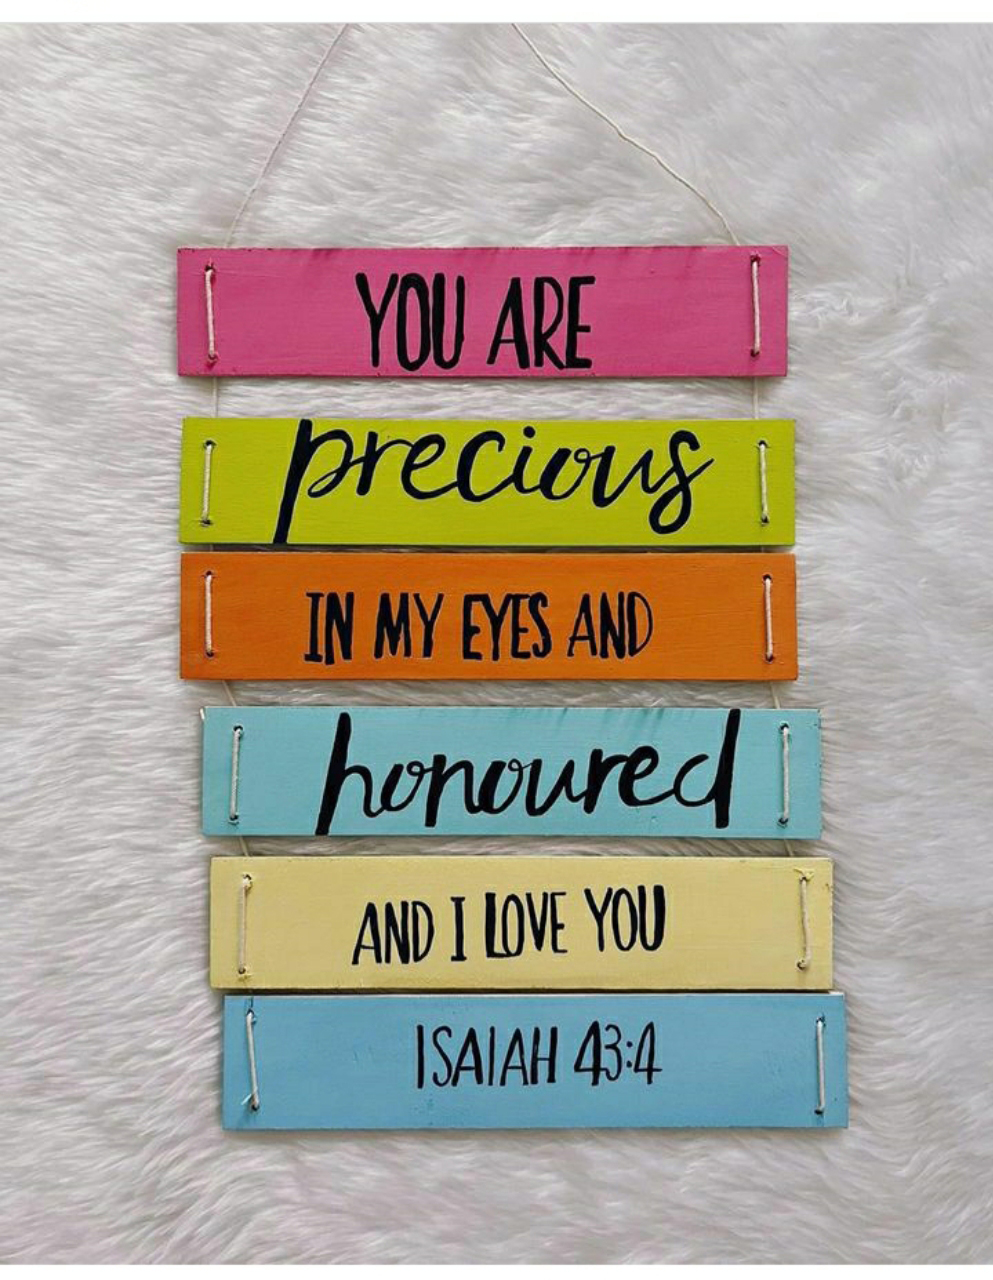 YOU ARE
precious
IN MY EYES AND
honoured
AND I LOVE YOU
ISAIAH 43:4